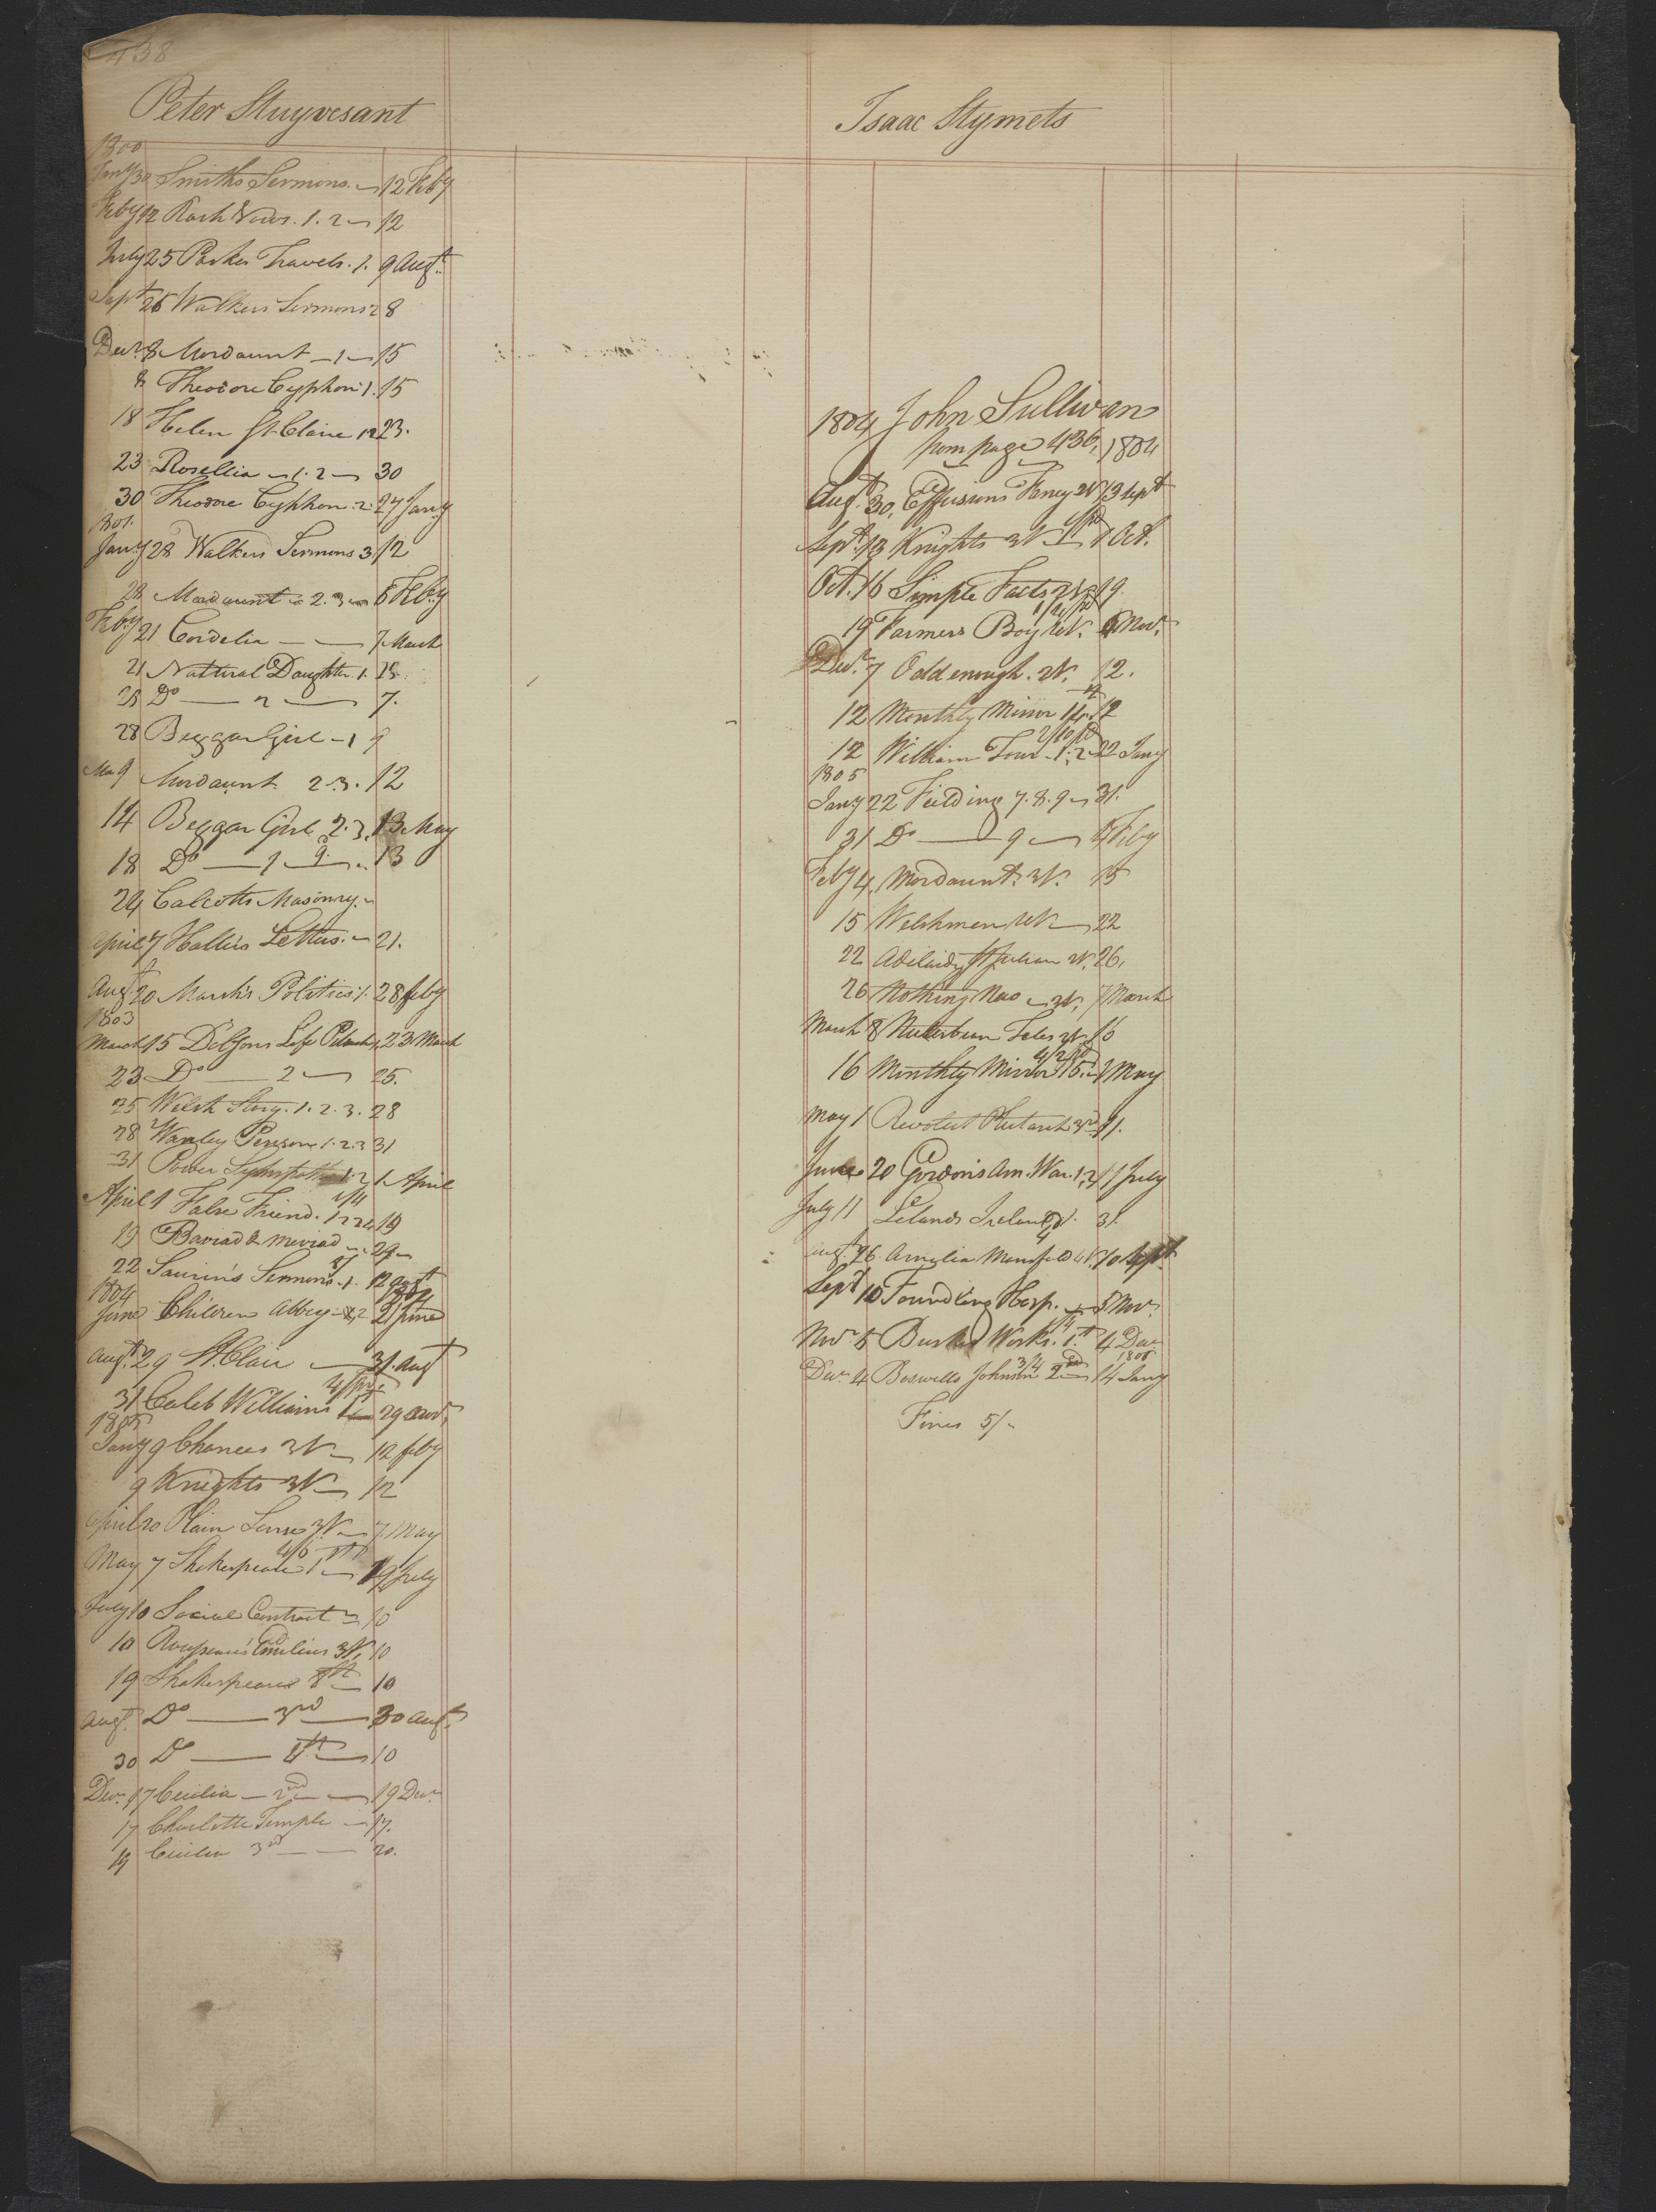 438
Peter Stuyvesant
1800
Jany 30 Smiths Sermons. 12 Feby
Feby 12 Rash Vows. 1. 2 12
July 25 Parkes Travels. 1. 9 Augt.
Sept 26 Walkers Sermons 2 8
Decr. 8 Mordaunt 1 15
8 Theodore Cyphon 1. 15
18 Helen St. Claire 1 2 23.
23 Rosellia 1. 2 30
30 Theodore Cyphon. 2. 27 Jany
1801.
Jany 28 Walkers Sermons 3 12
28 Mordaunt 2. 3 6 Feby
Feby 21 Cordelia 7 March
21 Natural Daughter. 1. 28
28 Do 2 7.
28 Beggar Girl 1 9
Mar 9 Mordaunt 2. 3. 12
14 Beggar Girl 2. 3. 13 May
18 Do 1 13
24 Calcotts Masonry.
April 7 Hollis Letters. 21.
Augt 20 Marsh's Politics 1. 28 feby
1803
March 15 Life 23 March
23 Do 2 25.
25 Welsh Story. 1. 2. 3. 28
28 Wanley Penson 1. 2. 3 31
31 Power Sympathy 1. 2 1 April
April 1 False Friend. 19
19 Baviad & Meviad 29
22 Saurin's Sermons. 1. 12 augt
1804
June Children Abbey 21 June
Augt. 29 St. Clair 31. Augt
31 Caleb Williams 1st 29
1805
Jany 9 Chances 3V 12 feby
9 Knights 3V 12
April 20 Plain Sense 3V 7 May
May 7 Shakespeare 1st 19 July
July 10 Social Contract 10
10 Emilius 3V. 10
19 Shakespeare 8th 10
Augt. Do 3rd 30 augt.
30 Do 10
Decr. 17 Cecilia 2nd 19 Decr
17 Charlotte Temple 17.
19 Cecilia 3rd 20.
Isaac Stymets
1804 John Sullivan
from page 436, 1804
Augt. 30, Effusions Fancy 2V 13 Sept
Sept. 13 Knights 3V 1 Oct.
Oct. 16 Simple Facts 2V 19.
19 Farmers Boy 6 Novr.
Decr. 7 Odd enough. 2V. 12.
12 Monthly Mirror 12
12 William Tour 1. 2 22 Jany
1805
Jany 22 Feilding 7. 8. 9 31.
31 Do 9 4 Feby
Feby 4, Mordaunt. 3V. 15
15 Welshmen 22
22 Adelaide St Julian 2V. 26.
26 Nothing New 3V. 7 March
March 8 Tales 16
16 Monthly Mirror 15. 1 May
May 1 Revolut Plutarch 3rd 11.
June 20 Gordon's Am. War. 1, 2 11 July
July 11 Lelands Ireland 31.
Augt. 26 Amelia Mansfield 10 Sept
Sept 10 Foundling Hosp. 5 Novr.
Novr. 5 Burkes Works. 1st 4 Decr
1806
Decr. 4 Boswells Johnson 2nd 14 Jany
Fines 5/-